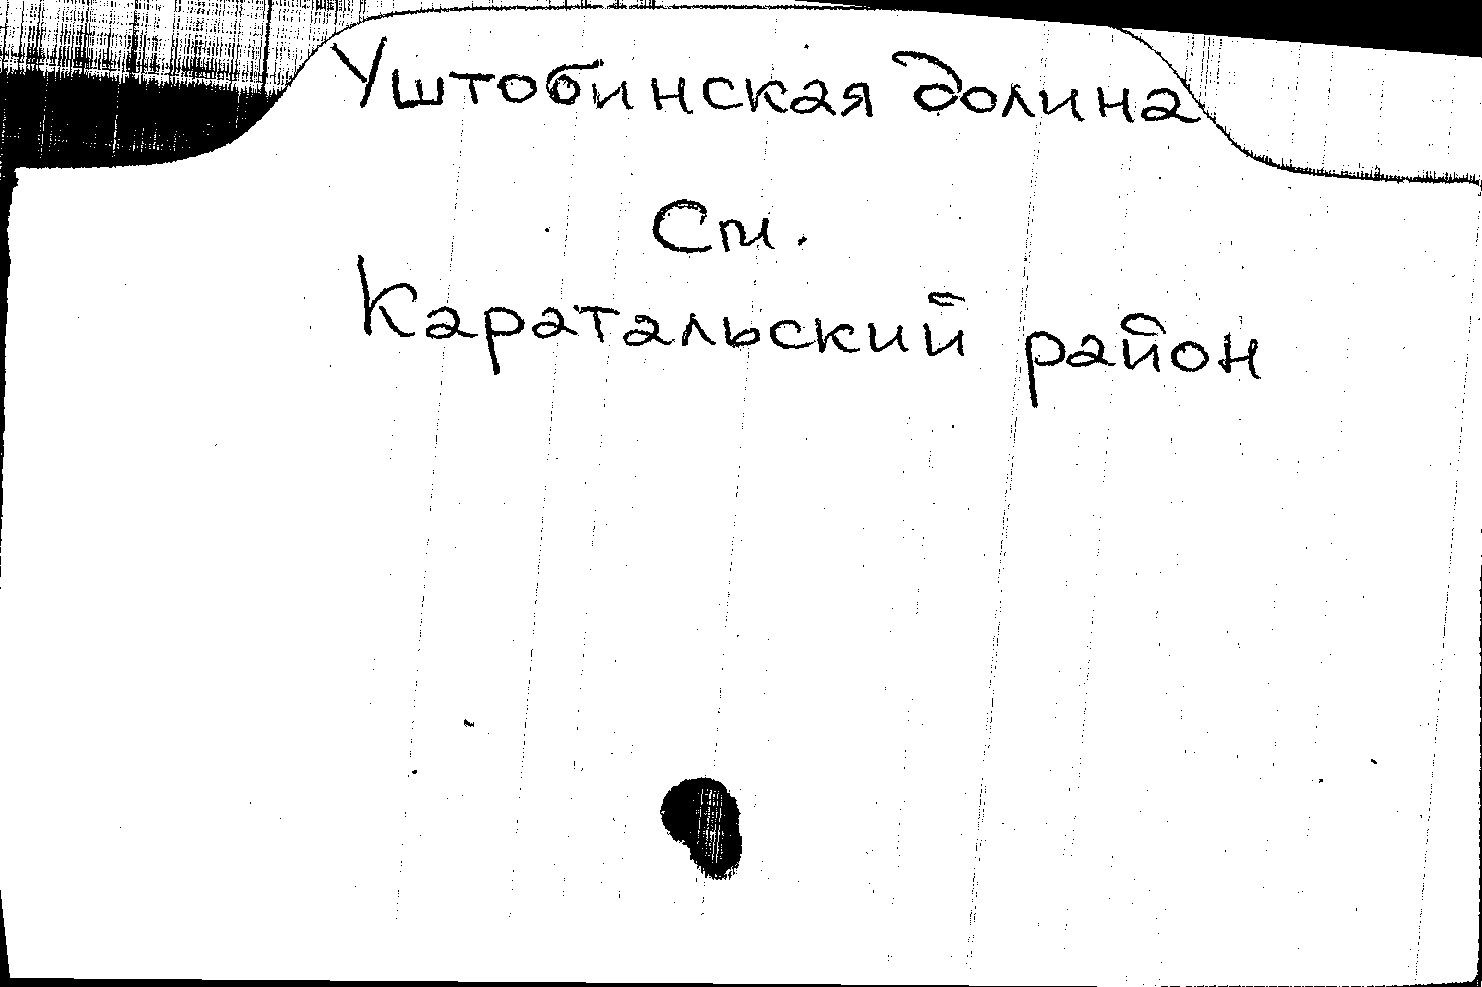 Уштобинская долина
См.
Каратальский район